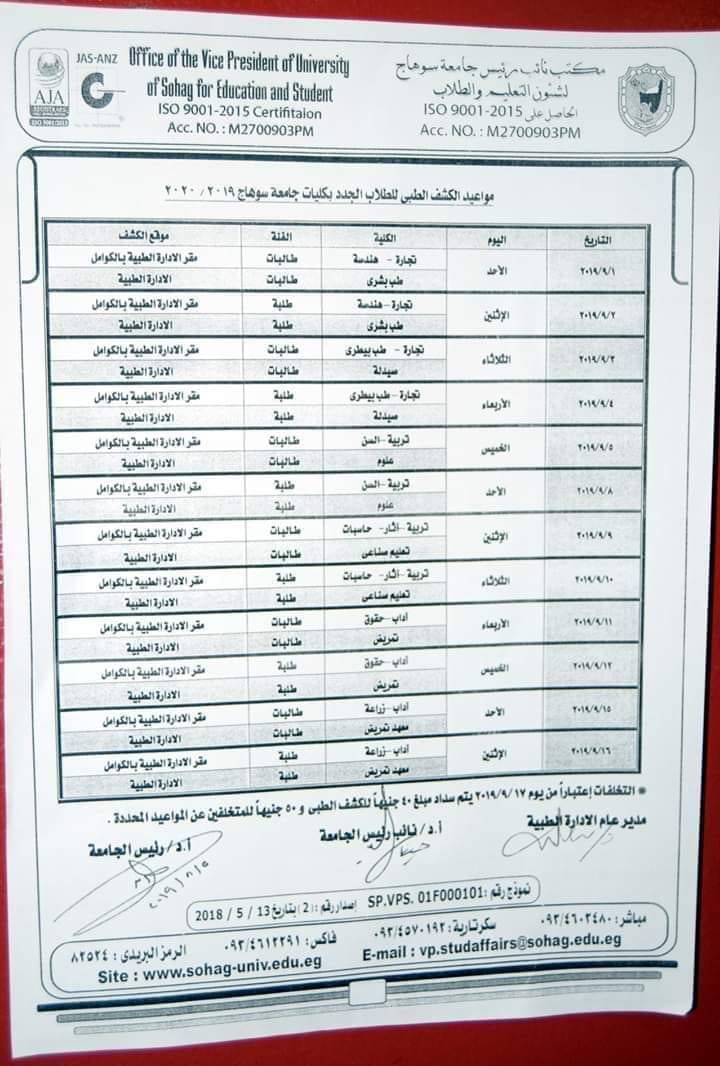 JAS-ANZ
AJA
Office of the Vice President of University
of Sohag for Education and Student
ISO 9001-2015 Certifitaion
Acc. NO. : M2700903PM
مكتب نائب رئيس جامعة سوهاج
لشئون التعليم والطلاب
الحاصل على ISO 9001-2015
Acc. NO. : M2700903PM
مواعيد الكشف الطبى للطلاب الجدد بكليات جامعة سوهاج ٢٠١٩ / ٢٠٢٠
التاريخ اليوم الكلية الفئة موقع الكشف
٢٠١٩/٩/١ الأحد تجارة - هندسة طالبات مقر الادارة الطبية بالكوامل
طب بشرى طالبات الادارة الطبية
٢٠١٩/٩/٢ الإثنين تجارة - هندسة طلبة مقر الادارة الطبية بالكوامل
طب بشرى طلبة الادارة الطبية
٢٠١٩/٩/٣ الثلاثاء تجارة - طب بيطرى طالبات مقر الادارة الطبية بالكوامل
صيدلة طالبات الادارة الطبية
٢٠١٩/٩/٤ الأربعاء تجارة - طب بيطرى طلبة مقر الادارة الطبية بالكوامل
صيدلة طلبة الادارة الطبية
٢٠١٩/٩/٥ الخميس تربية - السن طالبات مقر الادارة الطبية بالكوامل
علوم طالبات الادارة الطبية
٢٠١٩/٩/٨ الأحد تربية - السن طلبة مقر الادارة الطبية بالكوامل
علوم طلبة الادارة الطبية
٢٠١٩/٩/٩ الإثنين تربية - أثار - حاسبات طالبات مقر الادارة الطبية بالكوامل
تعليم صناعى طالبات الادارة الطبية
٢٠١٩/٩/١٠ الثلاثاء تربية - أثار - حاسبات طلبة مقر الادارة الطبية بالكوامل
تعليم صناعى طلبة الادارة الطبية
٢٠١٩/٩/١١ الأربعاء أداب - حقوق طالبات مقر الادارة الطبية بالكوامل
تمريض طالبات الادارة الطبية
٢٠١٩/٩/١٢ الخميس أداب - حقوق طلبة مقر الادارة الطبية بالكوامل
تمريض طلبة الادارة الطبية
٢٠١٩/٩/١٥ الأحد أداب - زراعة طالبات مقر الادارة الطبية بالكوامل
معهد تمريض طالبات الادارة الطبية
٢٠١٩/٩/١٦ الإثنين أداب - زراعة طلبة مقر الادارة الطبية بالكوامل
معهد تمريض طلبة الادارة الطبية
* التخلفات إعتباراً من يوم ٢٠١٩/٩/١٧ يتم سداد مبلغ ٤٠ جنيهاً للكشف الطبى و ٥٠ جنيهاً للمتخلفين عن المواعيد المحددة .
مدير عام الادارة الطبية
أ.د/ نائب رئيس الجامعة
أ.د/ رئيس الجامعة
نموذج رقم : SP.VPS. 01F000101 إصدار رقم : (2) بتاريخ 13/ 5 / 2018
مباشر: ٠٩٣/٤٦٠٢٤٨٠ سكرتارية: ٠٩٣/٤٥٧٠١٩٢ فاكس: ٠٩٣/٤٦١٢٢٩١ الرمز البريدى: ٨٢٥٢٤
E-mail : vp.studaffairs@sohag.edu.eg
Site : www.sohag-univ.edu.eg